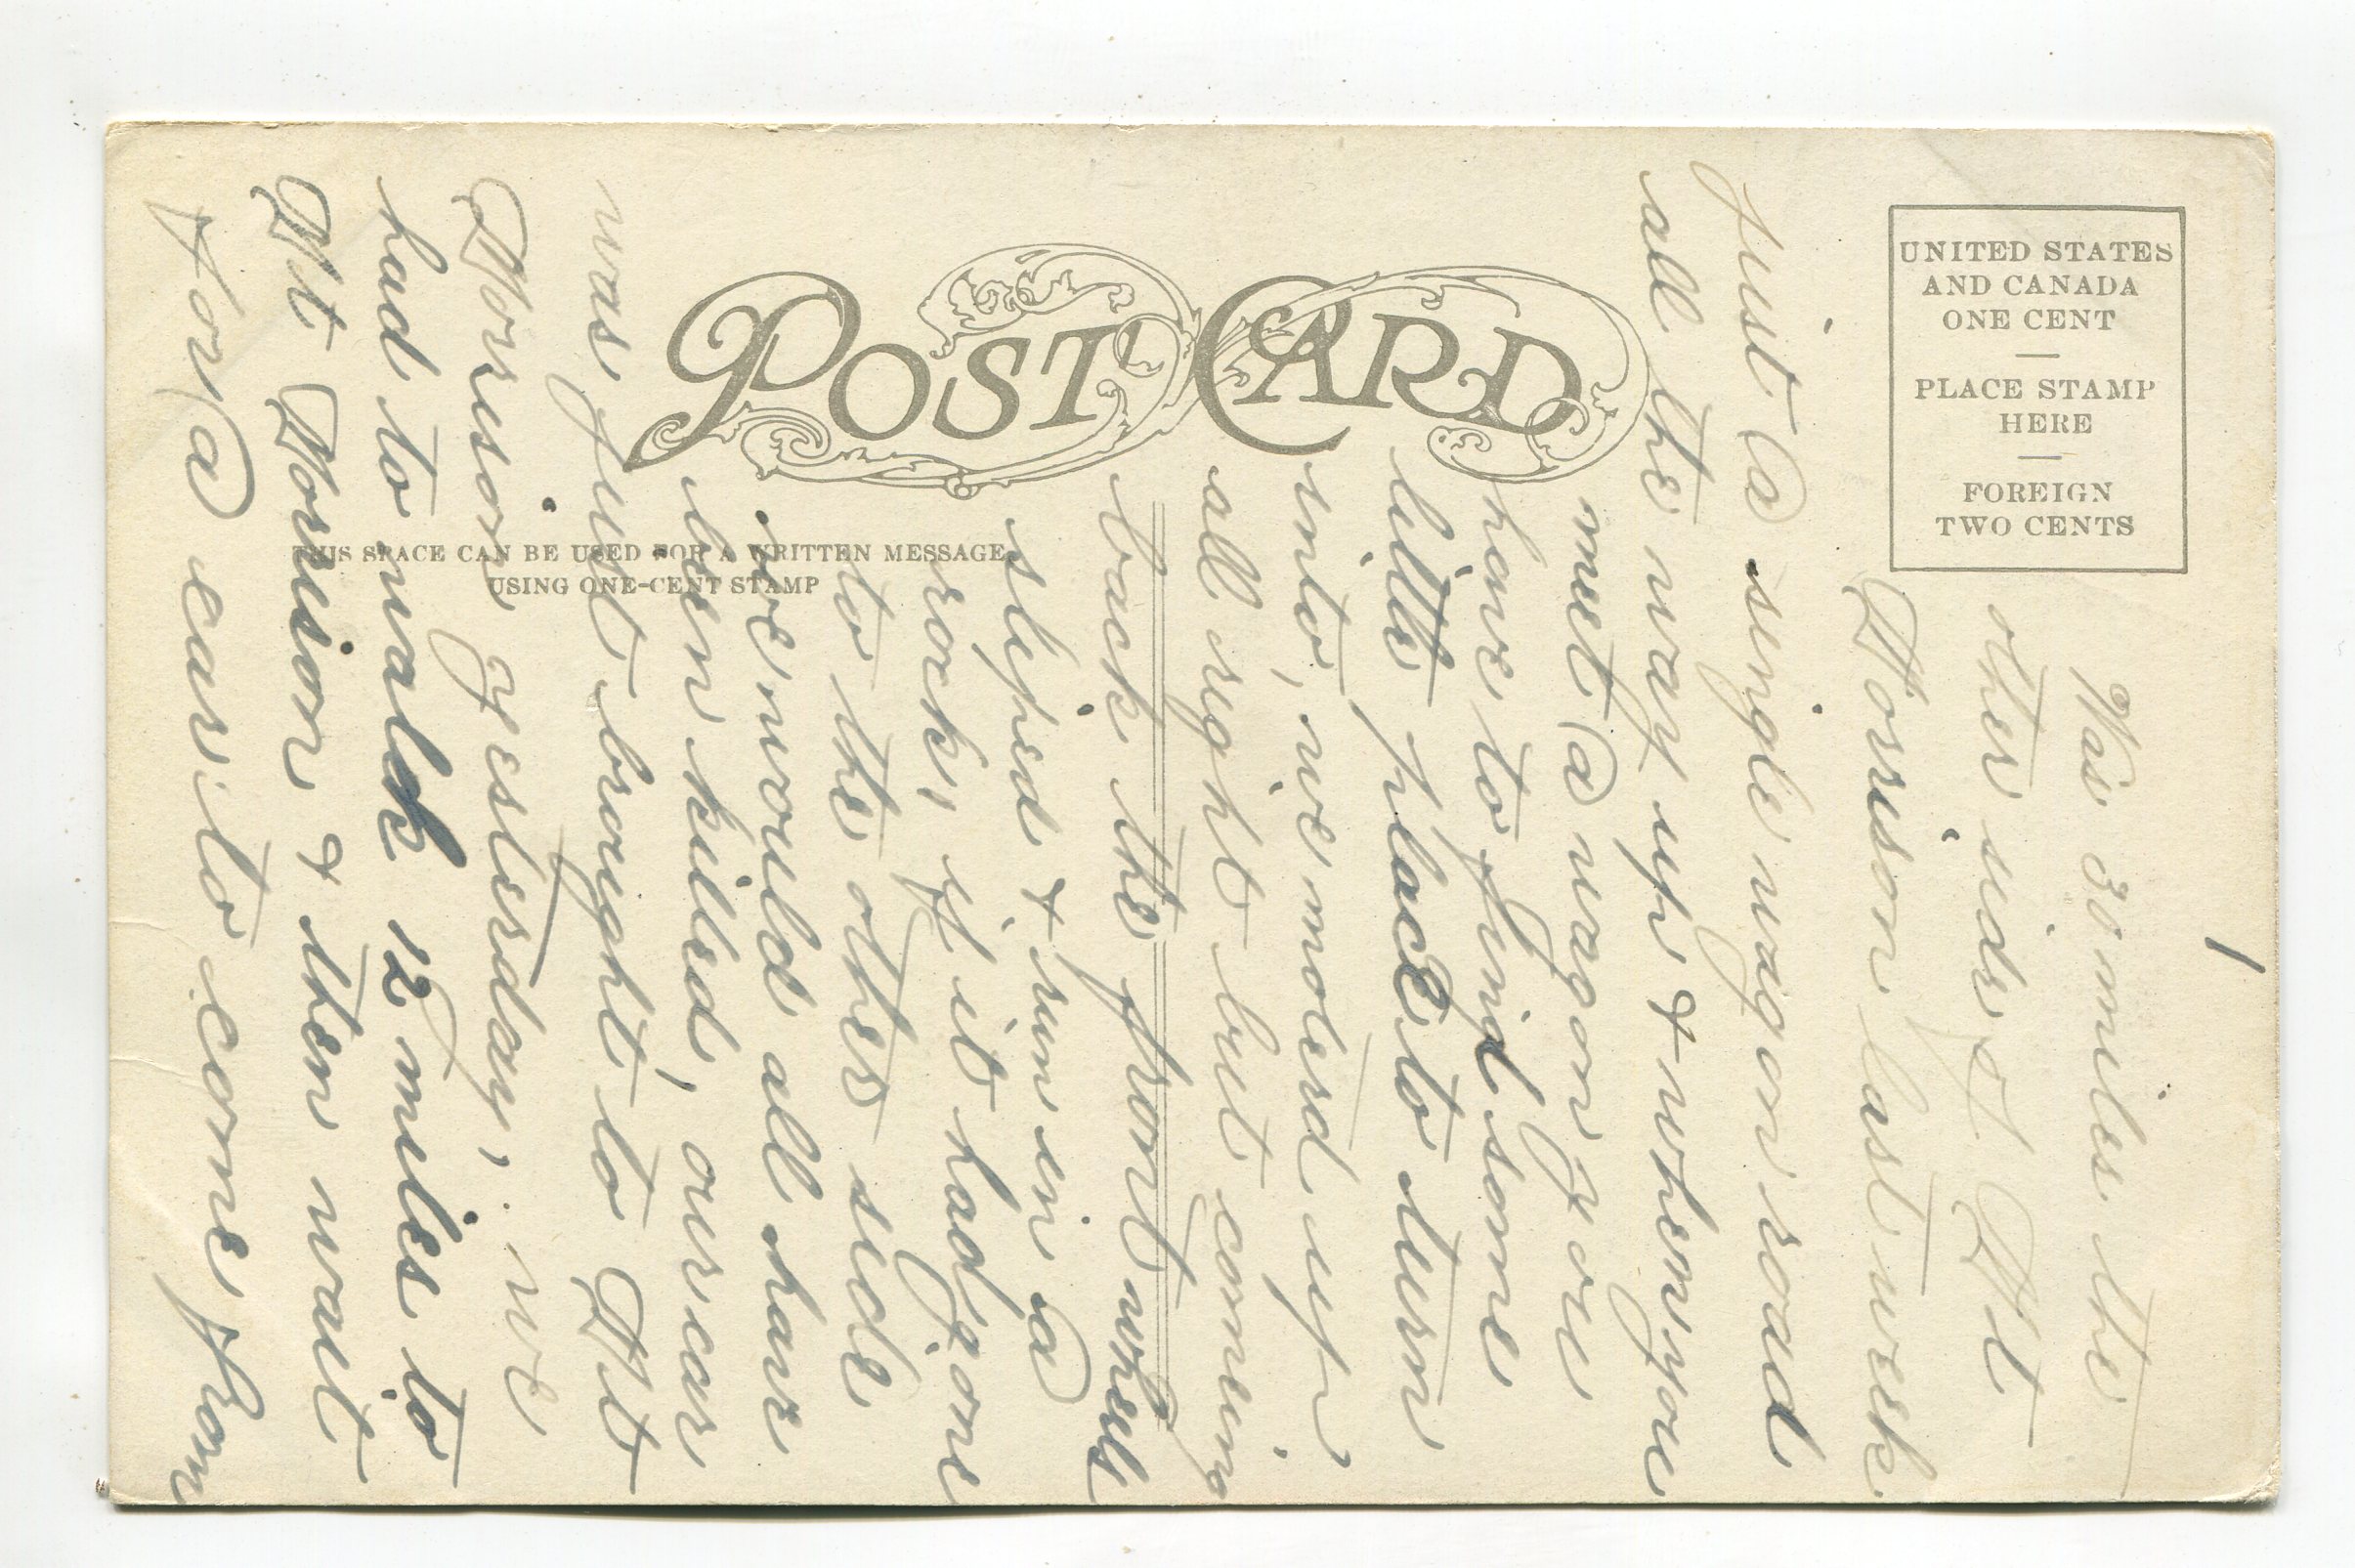 POST CARD
UNITED STATES
AND CANADA
ONE CENT
PLACE STAMP
HERE
FOREIGN
TWO CENTS
THIS SPACE CAN BE USED FOR A WRITTEN MESSAGE
USING ONE-CENT STAMP
1
Was 30 miles the
other side of Mt
Morrison last week
just a single wagon road
all the way up & when you
meet a wagon you
have to find some
little place to turn
into, we moterd up
all right but coming
back the front wheels
sliped & run in a
rock, if it had gone
to the other side
we would all have
been killed, our car
was just brought to Mt
Morrison yesterday, we
had to walk 12 miles to
Mt Morrison & then wait
for a car to come from